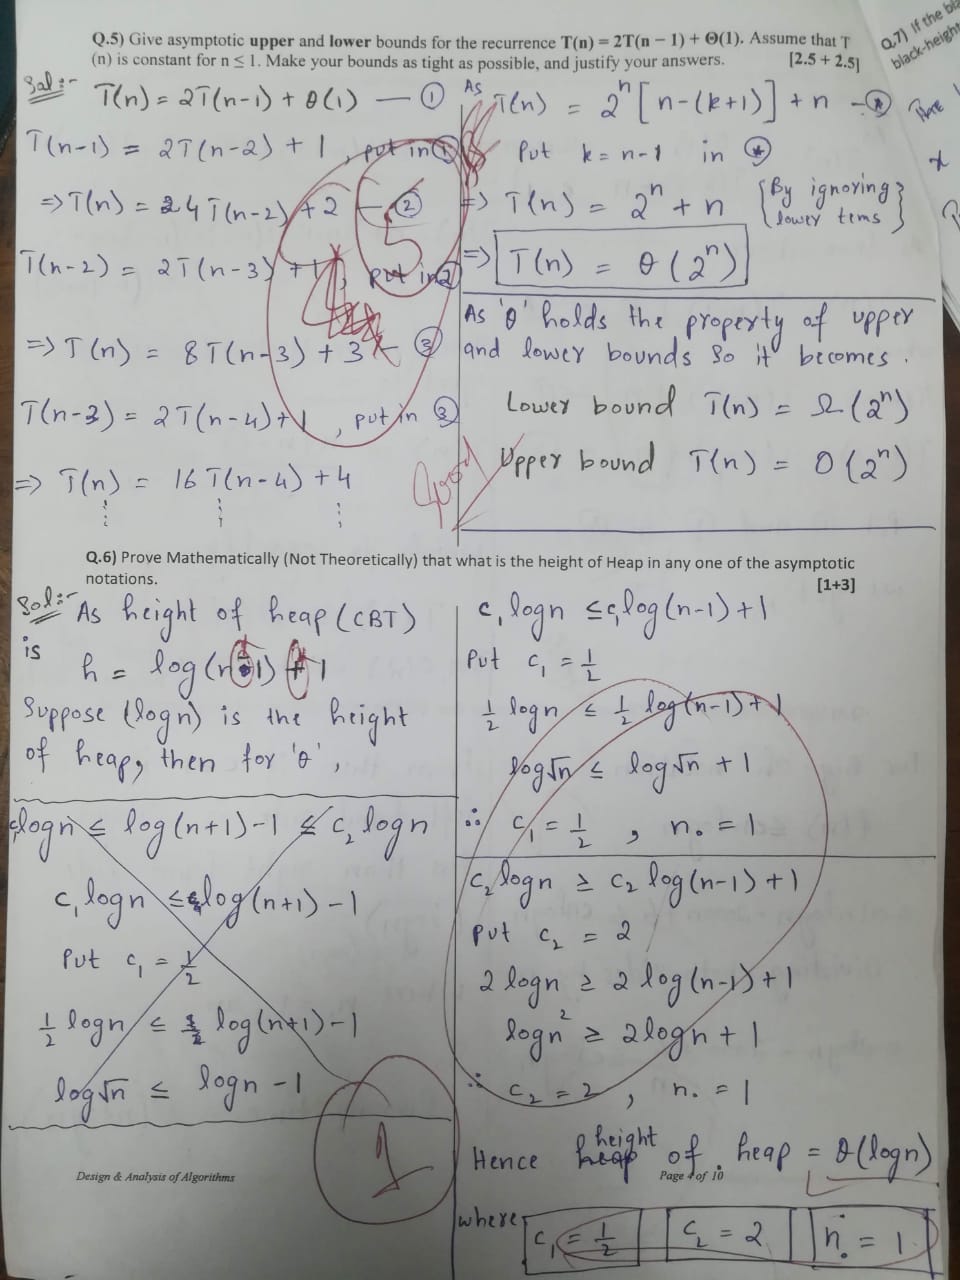 Q.5) Give asymptotic upper and lower bounds for the recurrence T(n) = 2T(n − 1) + Θ(1). Assume that T
(n) is constant for n ≤ 1. Make your bounds as tight as possible, and justify your answers. [2.5 + 2.5]
Sol:- T(n) = 2T(n-1) + θ(1) — ①
T(n-1) = 2T(n-2) + 1, put in ①
=> T(n) = 4T(n-2) + 2 — ②
T(n-2) = 2T(n-3) + 1, put in 2
=> T(n) = 8T(n-3) + 3 — ③
T(n-3) = 2T(n-4) + 1, put in ③
=> T(n) = 16T(n-4) + 4
5
Good
As T(n) = 2ⁿ[n-(k+1)] + n — ⊛
Put k = n-1 in ⊛
=> T(n) = 2ⁿ + n {By ignoring
lower tems}
=> T(n) = θ(2ⁿ)
As 'θ' holds the property of upper
and lower bounds so it becomes.
Lower bound T(n) = Ω(2ⁿ)
Upper bound T(n) = O(2ⁿ)
Q.7) If the
black-height
Q.6) Prove Mathematically (Not Theoretically) that what is the height of Heap in any one of the asymptotic
notations. [1+3]
Sol:- As height of heap (CBT)
is
h = log(n-1) + 1
Suppose (logn) is the height
of heap, then for 'θ',
c₁logn ≤ log(n+1)-1 ≤ c₂ logn
c₁ logn ≤ log(n+1) - 1
Put c₁ = 1/2
1/2 logn ≤ log(n+1)-1
log√n ≤ logn -1
1
c₁ logn ≤ c₁log(n-1)+1
Put c₁ = 1/2
1/2 logn ≤ 1/2 log(n-1)+1
log√n ≤ log√n + 1
∴ c₁ = 1/2 , n₀ = 1
c₂logn ≥ c₂ log(n-1)+1
Put c₂ = 2
2 logn ≥ 2 log(n-1)+1
logn² ≥ 2logn + 1
∴ c₂ = 2 , n₀ = 1
Hence height of heap = θ(logn)
where c₁ = 1/2 c₂ = 2 n₀ = 1
Design & Analysis of Algorithms Page 4 of 10